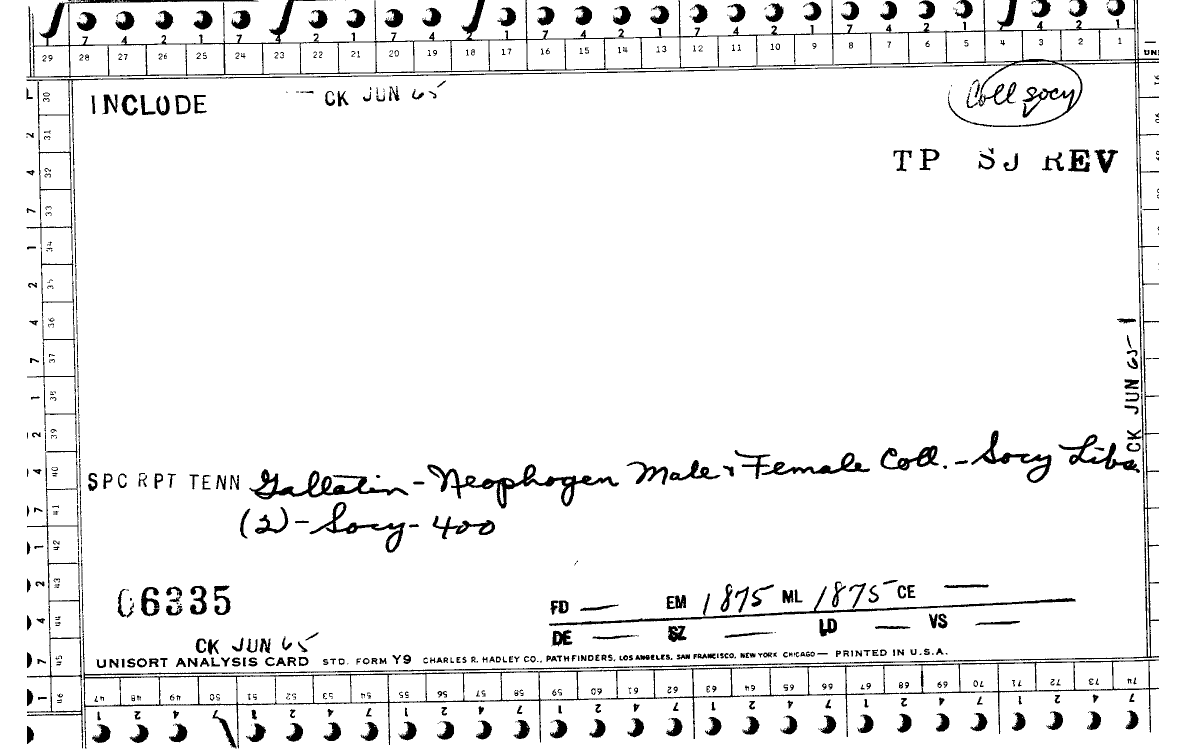 7 4 2 1 7 4 2 1 7 4 2 1 7 4 2 1 7 4 2 1 7 4 2 1 7 4 2 1
29 28 27 26 25 24 23 22 21 20 19 18 17 16 15 14 13 12 11 10 9 8 7 6 5 4 3 2 1
INCLUDE CK JUN 65 Coll socy
TP SJ REV
30
2 31
4 32
7 33
1 34
2 35
4 36
7 37
1 38
2 39
4 40
7 41
1 42
2 43
4 44
7 45
1 46
CK JUN 65 1
SPC RPT TENN Gallatin - Neophogen Male & Female Coll. - Socy Libs.
(2) - Socy - 400
06335
FD — EM 1875 ML 1875 CE —
DE — SZ — LD — VS —
CK JUN 65
UNISORT ANALYSIS CARD STD. FORM Y9 CHARLES R. HADLEY CO., PATHFINDERS, LOS ANGELES, SAN FRANCISCO, NEW YORK CHICAGO — PRINTED IN U.S.A.
47 48 49 50 51 52 53 54 55 56 57 58 59 60 61 62 63 64 65 66 67 68 69 70 71 72 73 74
1 2 4 7 1 2 4 7 1 2 4 7 1 2 4 7 1 2 4 7 1 2 4 7 1 2 4 7